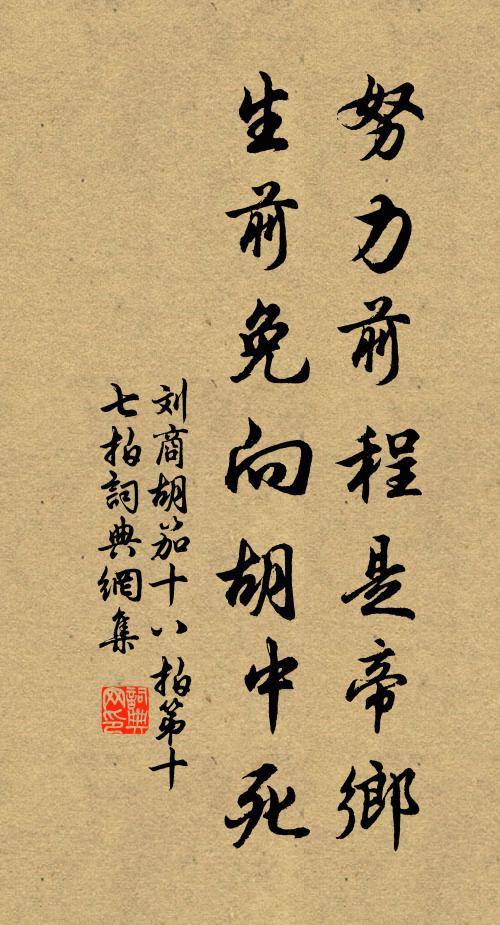 努力前程是帝鄉
生前免向胡中死
刘商胡笳十八拍第十
七拍詞典網集
詞典
网印